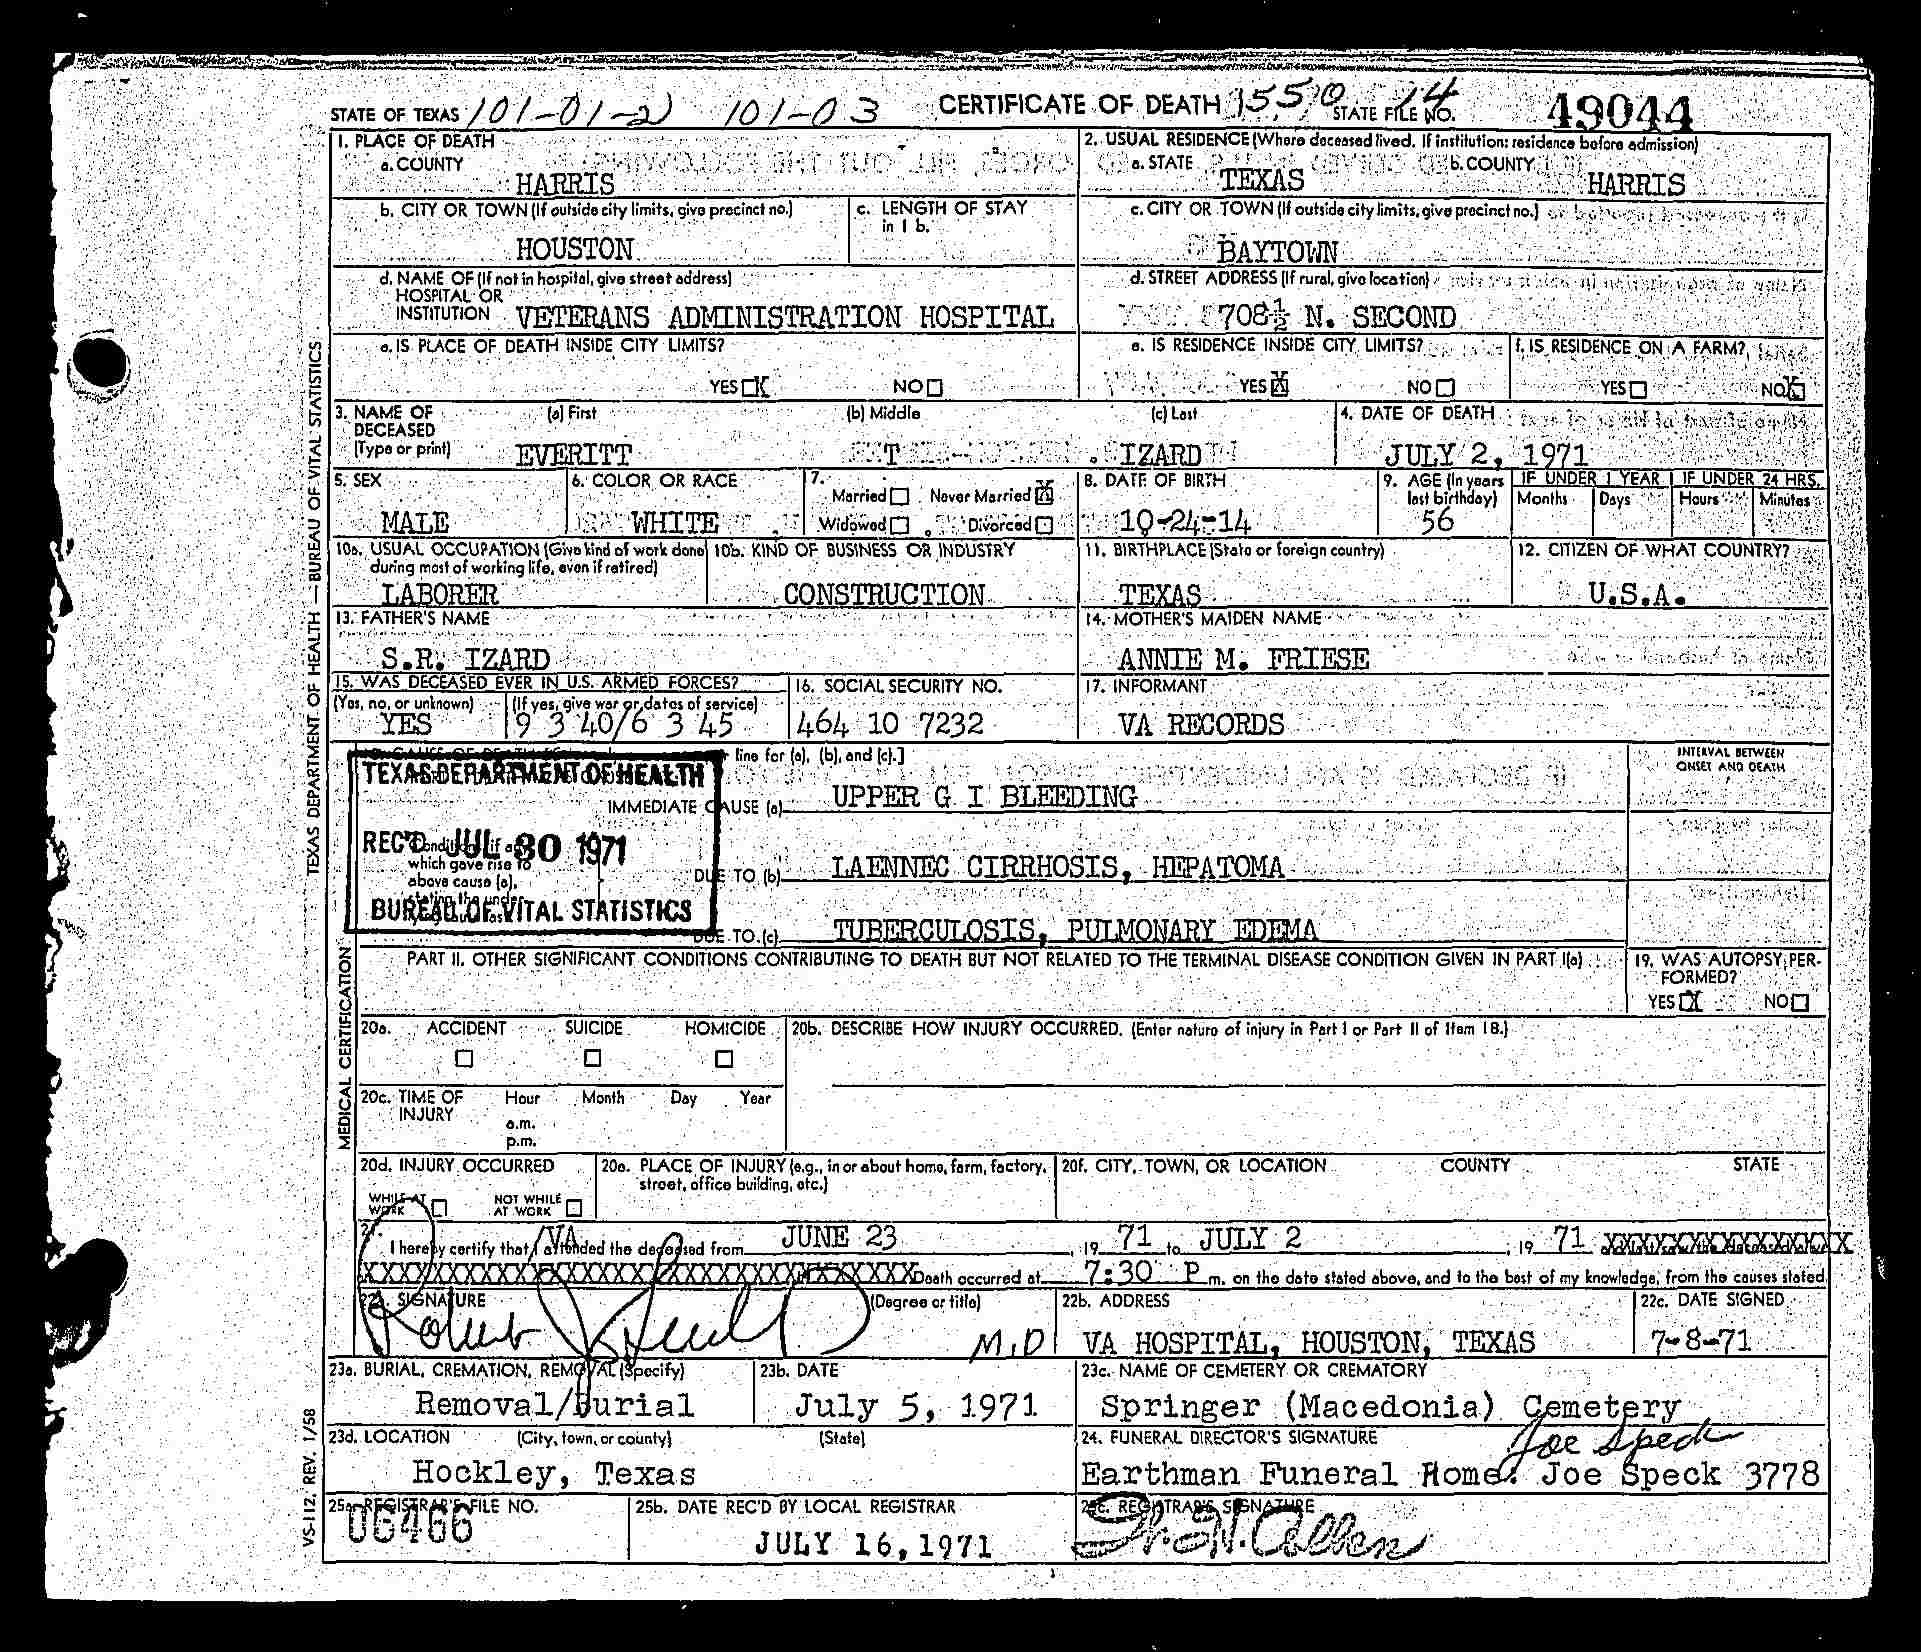 STATE OF TEXAS 101-01-2 101-03 CERTIFICATE OF DEATH 1550 STATE FILE NO. 14 49044
1. PLACE OF DEATH
a. COUNTY
HARRIS
2. USUAL RESIDENCE (Where deceased lived. If institution: residence before admission)
a. STATE b. COUNTY
TEXAS HARRIS
b. CITY OR TOWN (If outside city limits, give precinct no.) c. LENGTH OF STAY
in 1 b.
HOUSTON
c. CITY OR TOWN (If outside city limits, give precinct no.)
BAYTOWN
d. NAME OF (If not in hospital, give street address)
HOSPITAL OR
INSTITUTION VETERANS ADMINISTRATION HOSPITAL
d. STREET ADDRESS (If rural, give location)
708½ N. SECOND
e. IS PLACE OF DEATH INSIDE CITY LIMITS?
YES X NO
e. IS RESIDENCE INSIDE CITY LIMITS? f. IS RESIDENCE ON A FARM?
YES X NO YES NO X
3. NAME OF (a) First (b) Middle (c) Last 4. DATE OF DEATH
DECEASED
(Type or print) EVERITT T . IZARD JULY 2, 1971
5. SEX 6. COLOR OR RACE 7. 8. DATE OF BIRTH 9. AGE (In years IF UNDER 1 YEAR IF UNDER 24 HRS.
Married Never Married X last birthday) Months Days Hours Minutes
MALE WHITE Widowed Divorced 10-24-14 56
10a. USUAL OCCUPATION (Give kind of work done 10b. KIND OF BUSINESS OR INDUSTRY 11. BIRTHPLACE (State or foreign country) 12. CITIZEN OF WHAT COUNTRY?
during most of working life, even if retired)
LABORER CONSTRUCTION TEXAS U.S.A.
13. FATHER'S NAME 14. MOTHER'S MAIDEN NAME
S.R. IZARD ANNIE M. FRIESE
15. WAS DECEASED EVER IN U.S. ARMED FORCES? 16. SOCIAL SECURITY NO. 17. INFORMANT
(Yes, no, or unknown) (If yes, give war or dates of service)
YES 9 3 40/6 3 45 464 10 7232 VA RECORDS
line for (a), (b), and (c).] INTERVAL BETWEEN
ONSET AND DEATH
TEXAS DEPARTMENT OF HEALTH
IMMEDIATE CAUSE (a) UPPER G I BLEEDING
REC'D JUL 30 1971
which gave rise to
above cause (a),
DUE TO (b) LAENNEC CIRRHOSIS, HEPATOMA
BUREAU OF VITAL STATISTICS
DUE TO (c) TUBERCULOSIS, PULMONARY EDEMA
PART II. OTHER SIGNIFICANT CONDITIONS CONTRIBUTING TO DEATH BUT NOT RELATED TO THE TERMINAL DISEASE CONDITION GIVEN IN PART I(a) 19. WAS AUTOPSY PER-
FORMED?
YES X NO
20a. ACCIDENT SUICIDE HOMICIDE 20b. DESCRIBE HOW INJURY OCCURRED. (Enter nature of injury in Part I or Part II of Item 18.)
20c. TIME OF Hour Month Day Year
INJURY a.m.
p.m.
20d. INJURY OCCURRED 20e. PLACE OF INJURY (e.g., in or about home, farm, factory, 20f. CITY, TOWN, OR LOCATION COUNTY STATE
street, office building, etc.)
WHILE AT WORK NOT WHILE AT WORK
21. I hereby certify that VA attended the deceased from JUNE 23, 19 71 to JULY 2, 19 71 XXXXXXXXXXXXXXXXXX
XXXXXXXXXXXXXXXXXXXXXXXXXXXXXXXXXXXXXX Death occurred at 7:30 P m. on the date stated above, and to the best of my knowledge, from the causes stated.
22a. SIGNATURE (Degree or title) 22b. ADDRESS 22c. DATE SIGNED
Robert M.D VA HOSPITAL, HOUSTON, TEXAS 7-8-71
23a. BURIAL, CREMATION, REMOVAL (Specify) 23b. DATE 23c. NAME OF CEMETERY OR CREMATORY
Removal/Burial July 5, 1971 Springer (Macedonia) Cemetery
23d. LOCATION (City, town, or county) (State) 24. FUNERAL DIRECTOR'S SIGNATURE Joe Speck
Hockley, Texas Earthman Funeral Home: Joe Speck 3778
25a. REGISTRAR'S FILE NO. 25b. DATE REC'D BY LOCAL REGISTRAR 25c. REGISTRAR'S SIGNATURE
06466 JULY 16, 1971 Allen
TEXAS DEPARTMENT OF HEALTH — BUREAU OF VITAL STATISTICS
MEDICAL CERTIFICATION
VS-112, REV. 1/58